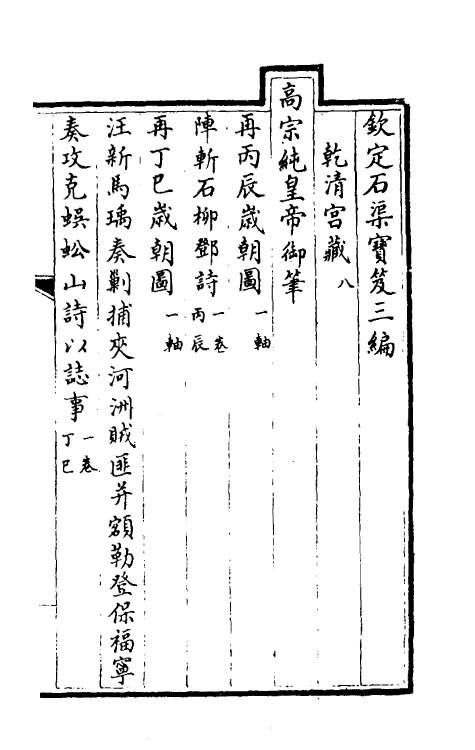 欽定石渠寶笈三編
乾清宫藏 八
高宗純皇帝御筆
再丙辰歲朝圖 一軸
陣斬石柳鄧詩 一卷 丙辰
再丁巳歲朝圖 一軸
汪新馬瑀奏剿捕夾河洲賊匪并額勒登保福寧
奏攻克蜈蚣山詩以誌事 一卷 丁巳